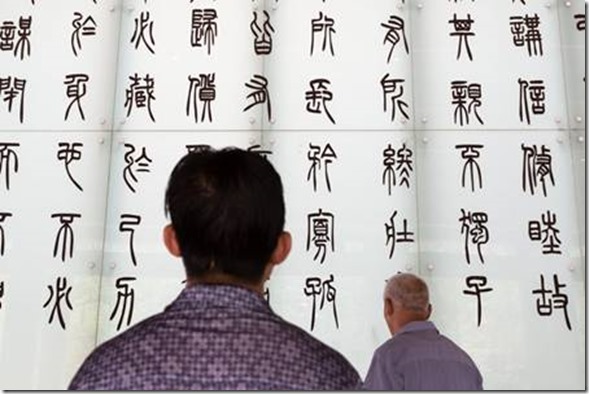 講信脩睦故
其親不獨子
有所終壯
所長矜寡孤
皆有
歸貨
必藏於己力
於身也不必
謀閉而不